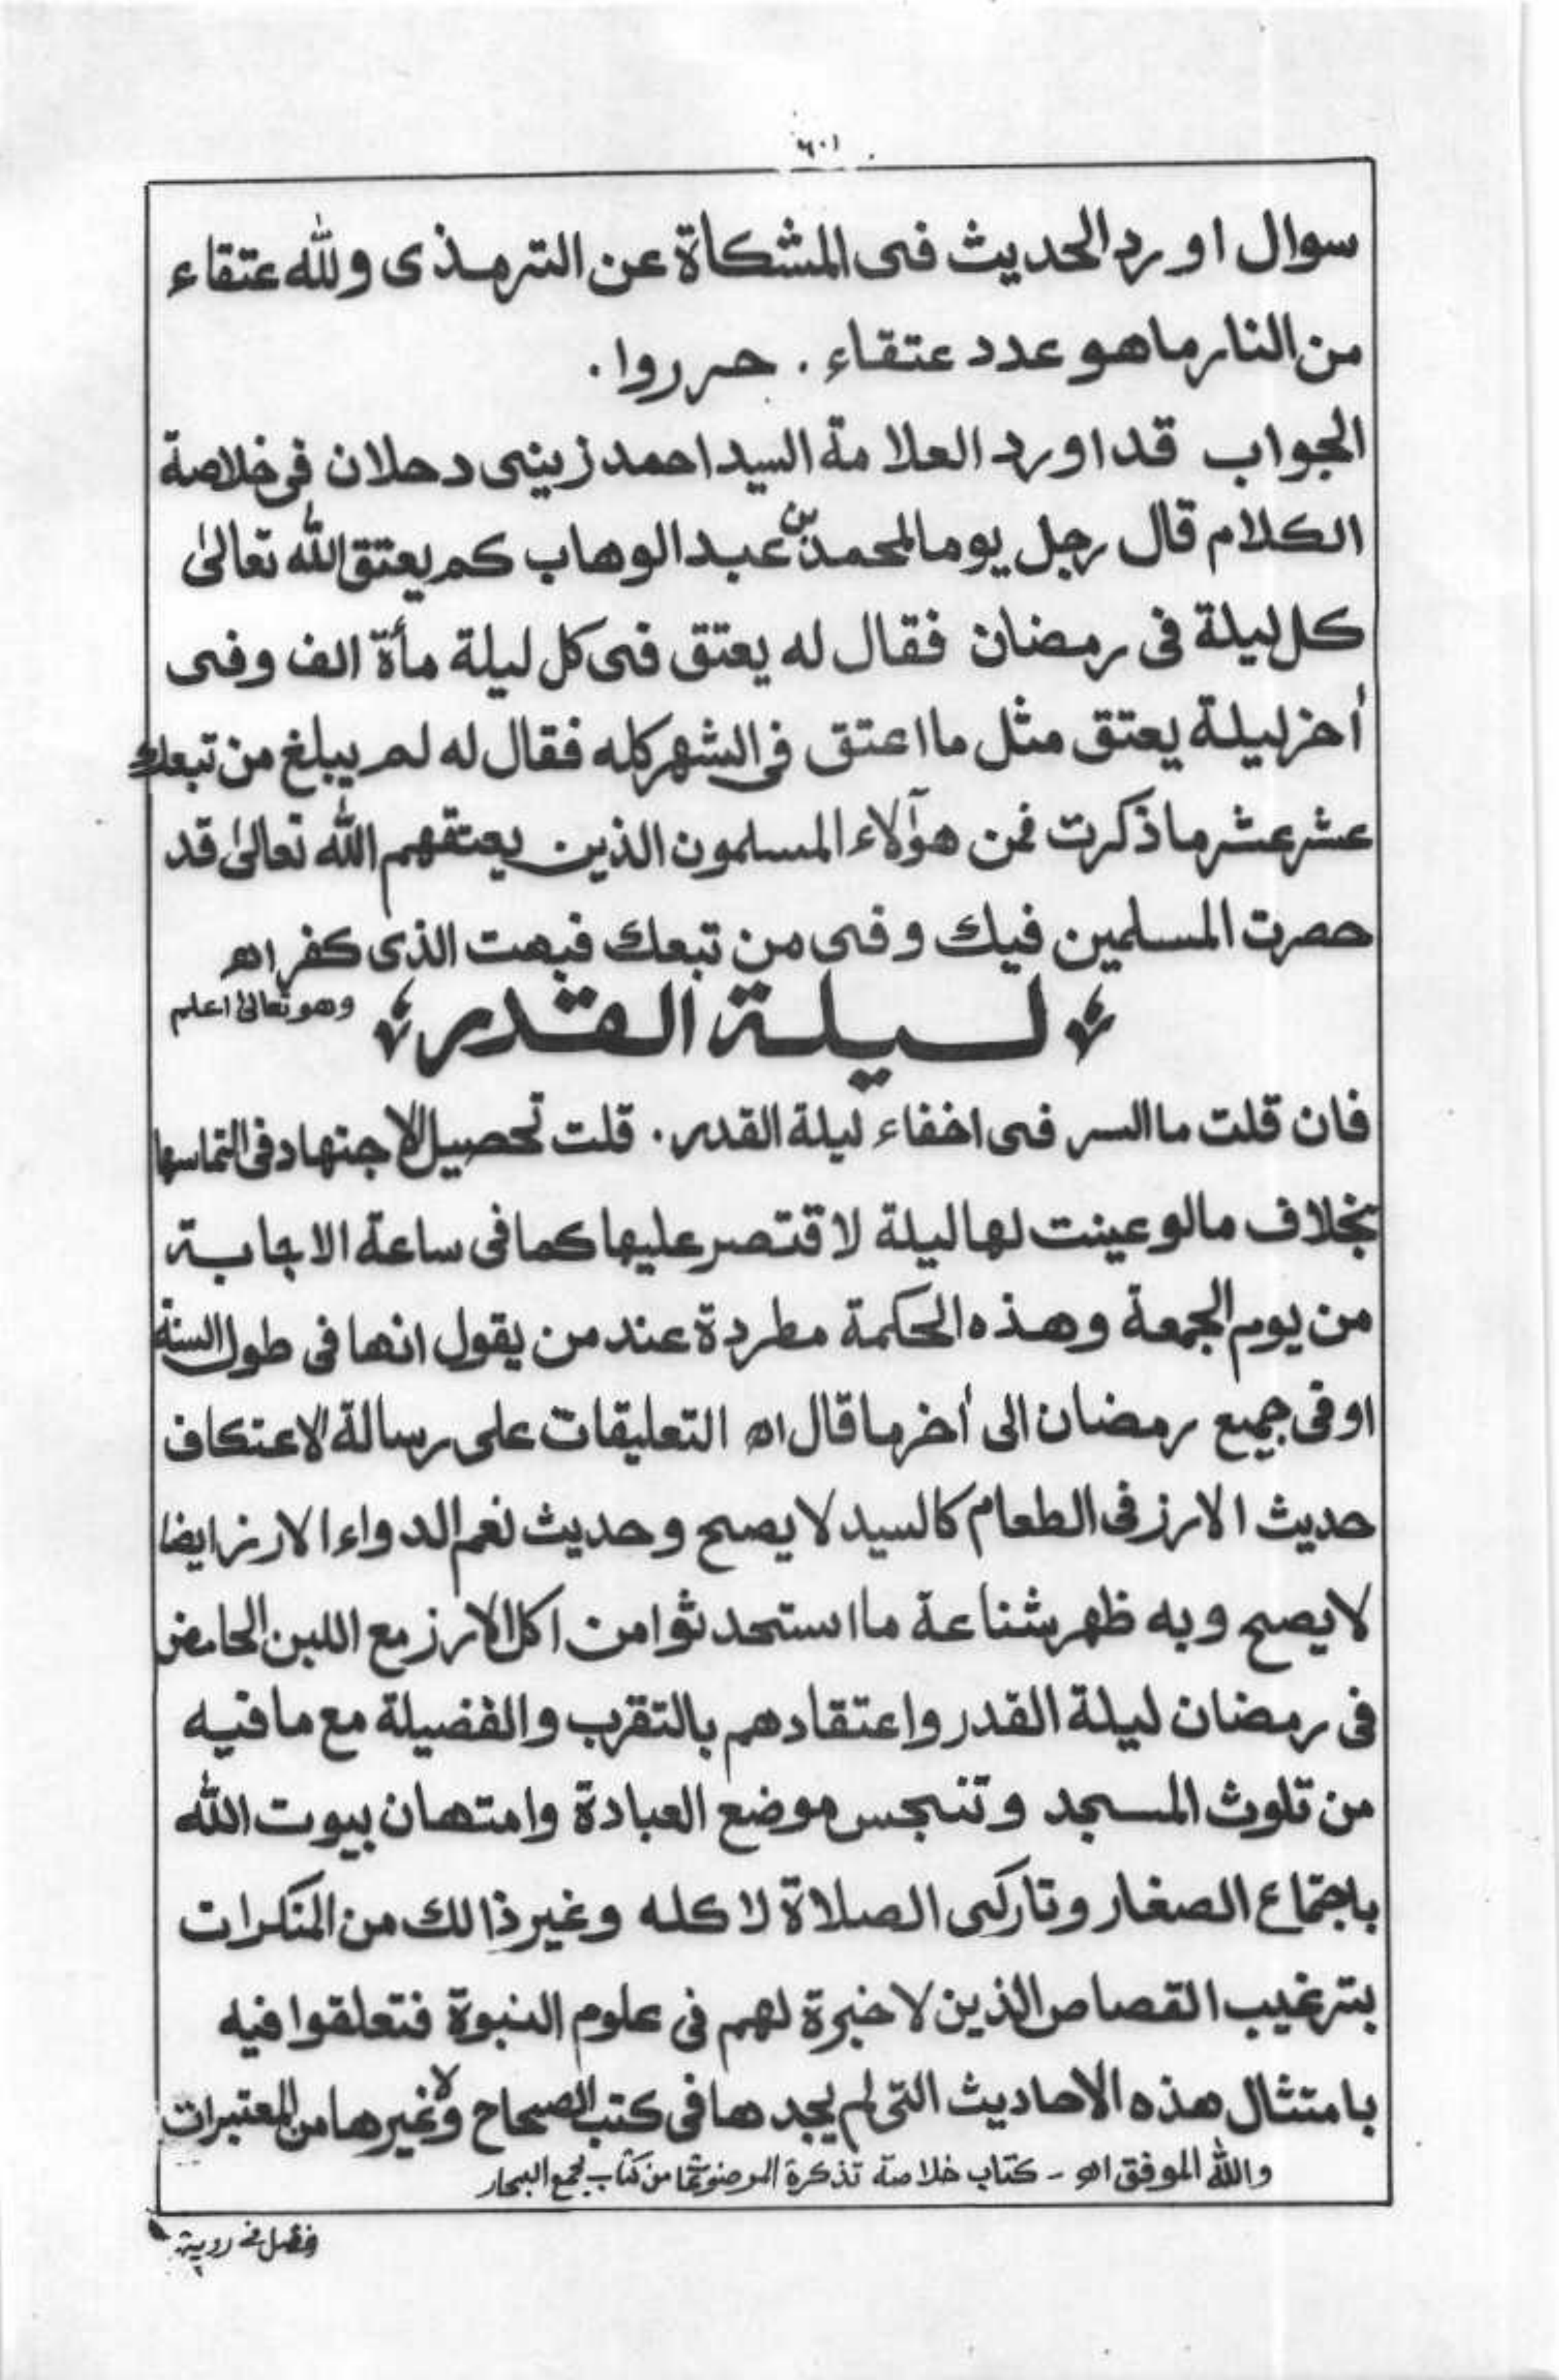 ٦٠١
سوال اورد الحديث فى المشكاة عن الترمذى ولله عتقاء
من النار ماهو عدد عتقاء . حرروا .
الجواب قد اورد العلامة السيد احمد زينى دحلان فى خلاصة
الكلام قال رجل يوما لمحمد بن عبد الوهاب كم يعتق الله تعالىٰ
كل ليلة فى رمضان فقال له يعتق فى كل ليلة مأة الف وفى
أخر ليلة يعتق مثل ما اعتق فى الشهر كله فقال له لم يبلغ من تبعك
عشر عشر ما ذكرت فمن هؤلاء المسلمون الذين يعتقهم الله تعالىٰ قد
حصرت المسلمين فيك وفى من تبعك فبهت الذى كفر اه
وهو تعالىٰ اعلم
ليلة القدر
فان قلت ما السر فى اخفاء ليلة القدر . قلت تحصيل الاجتهاد فى التماسها
بخلاف مالو عينت لها ليلة لاقتصر عليها كما فى ساعة الاجابة
من يوم الجمعة وهذه الحكمة مطردة عند من يقول انها فى طول السنة
او فى جميع رمضان الى أخر ما قال اه التعليقات على رسالة لاعتكاف
حديث الارز فى الطعام كالسيد لا يصح وحديث نعم الدواء الارز ايضا
لا يصح وبه ظهر شناعة ما استحدثوا من اكل الارز مع اللبن الحامض
فى رمضان ليلة القدر واعتقادهم بالتقرب والفضيلة مع ما فيه
من تلوث المسجد وتنجس موضع العبادة وامتهان بيوت الله
باجتماع الصغار وتاركى الصلاة لاكله وغير ذالك من المنكرات
بترغيب القصاص الذين لا خبرة لهم فى علوم النبوة فتعلقوا فيه
بامتثال هذه الاحاديث التى لم يجدها فى كتب الصحاح ولا غيرها من المعتبرات
والله الموفق اه - كتاب خلاصة تذكرة الموضوعات من كتاب مجمع البحار
فصل فى روية